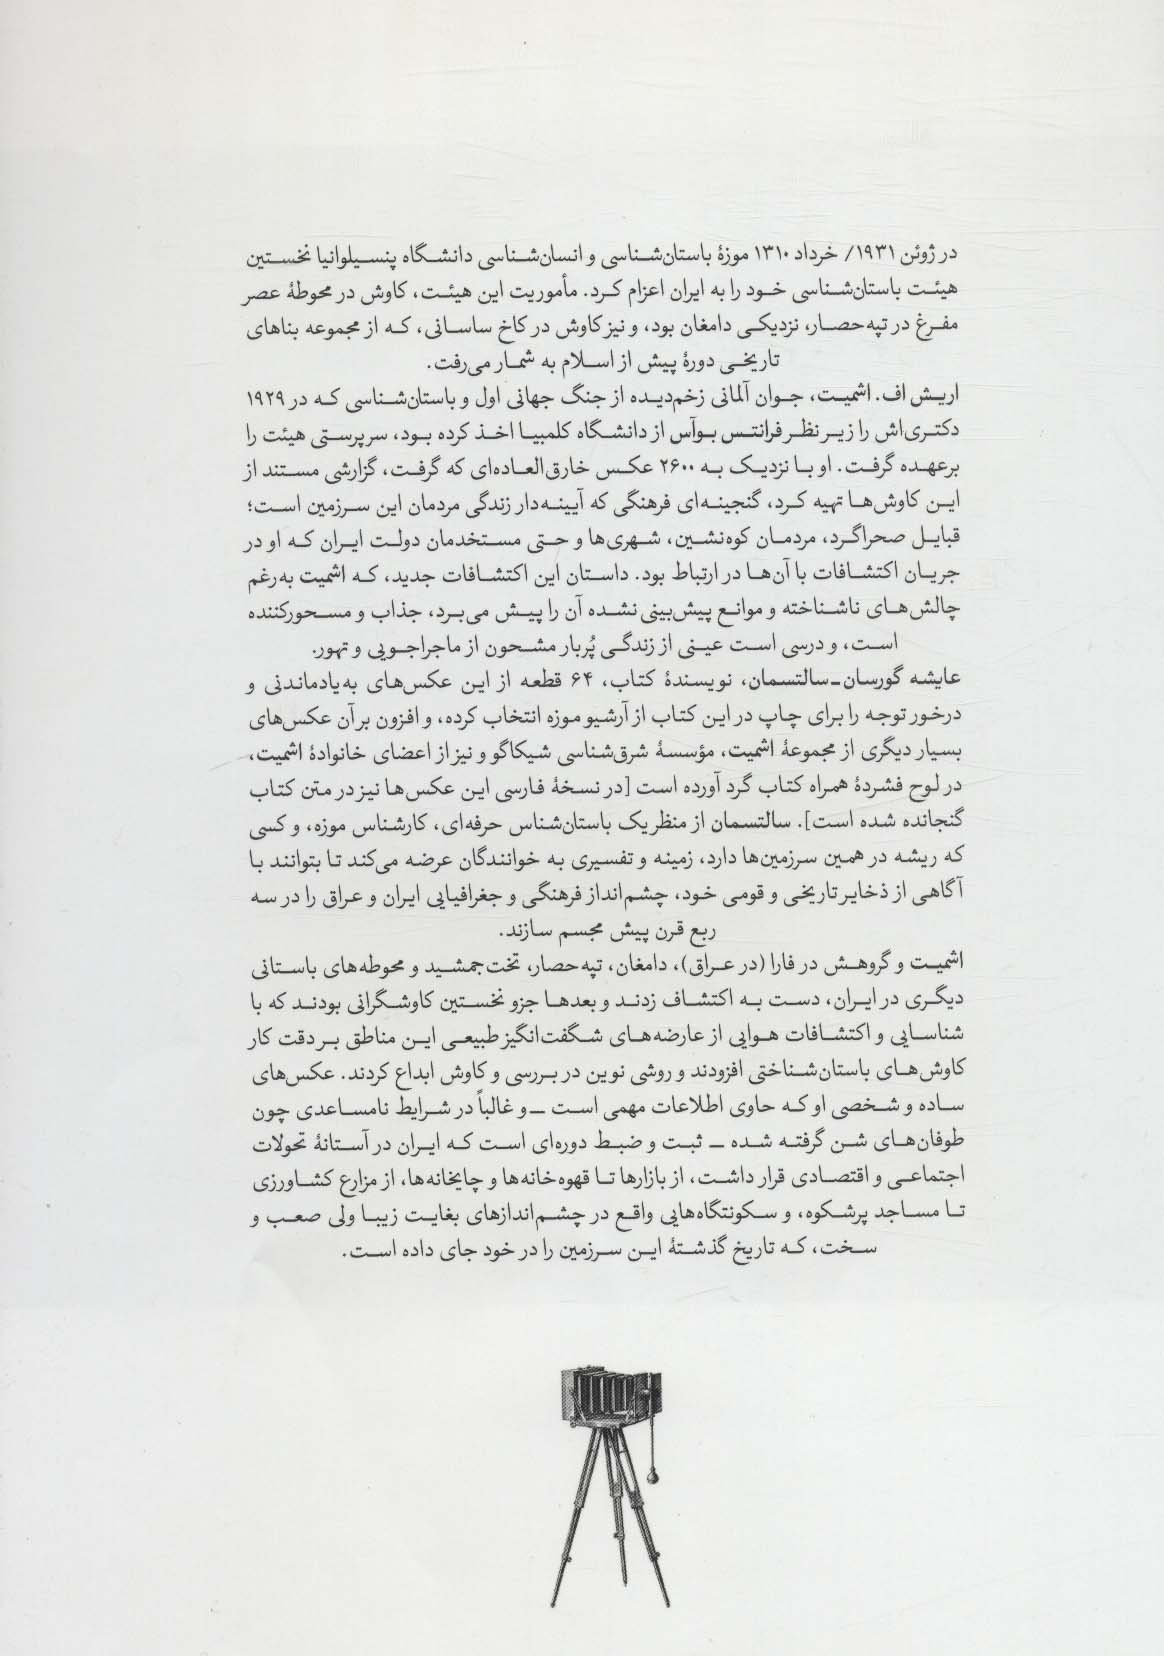 در ژوئن ۱۹۳۱/ خرداد ۱۳۱۰ موزهٔ باستان‌شناسی و انسان‌شناسی دانشگاه پنسیلوانیا نخستین
هیئت باستان‌شناسی خود را به ایران اعزام کرد. مأموریت این هیئت، کاوش در محوطهٔ عصر
مفرغ در تپه‌حصار، نزدیکی دامغان بود، و نیز کاوش در کاخ ساسانی، که از مجموعه بناهای
تاریخی دورهٔ پیش از اسلام به شمار می‌رفت.
اریش اف. اشمیت، جوان آلمانی زخم‌دیده از جنگ جهانی اول و باستان‌شناسی که در ۱۹۲۹
دکتری‌اش را زیر نظر فرانتس بوآس از دانشگاه کلمبیا اخذ کرده بود، سرپرستی هیئت را
برعهده گرفت. او با نزدیک به ۲۶۰۰ عکس خارق‌العاده‌ای که گرفت، گزارشی مستند از
این کاوش‌ها تهیه کرد، گنجینه‌ای فرهنگی که آیینه‌دار زندگی مردمان این سرزمین است؛
قبایل صحراگرد، مردمان کوه‌نشین، شهری‌ها و حتی مستخدمان دولت ایران که او در
جریان اکتشافات با آن‌ها در ارتباط بود. داستان این اکتشافات جدید، که اشمیت به‌رغم
چالش‌های ناشناخته و موانع پیش‌بینی نشده آن را پیش می‌برد، جذاب و مسحورکننده
است، و درسی است عینی از زندگی پُربار مشحون از ماجراجویی و تهور.
عایشه گورسان-سالتسمان، نویسندهٔ کتاب، ۶۴ قطعه از این عکس‌های به‌یادماندنی و
درخور توجه را برای چاپ در این کتاب از آرشیو موزه انتخاب کرده، و افزون بر آن عکس‌های
بسیار دیگری از مجموعهٔ اشمیت، مؤسسهٔ شرق‌شناسی شیکاگو و نیز از اعضای خانوادهٔ اشمیت،
در لوح فشردهٔ همراه کتاب گرد آورده است [در نسخهٔ فارسی این عکس‌ها نیز در متن کتاب
گنجانده شده است]. سالتسمان از منظر یک باستان‌شناس حرفه‌ای، کارشناس موزه، و کسی
که ریشه در همین سرزمین‌ها دارد، زمینه و تفسیری به خوانندگان عرضه می‌کند تا بتوانند با
آگاهی از ذخایر تاریخی و قومی خود، چشم‌انداز فرهنگی و جغرافیایی ایران و عراق را در سه
ربع قرن پیش مجسم سازند.
اشمیت و گروهش در فارا (در عراق)، دامغان، تپه‌حصار، تخت‌جمشید و محوطه‌های باستانی
دیگری در ایران، دست به اکتشاف زدند و بعدها جزو نخستین کاوشگرانی بودند که با
شناسایی و اکتشافات هوایی از عارضه‌های شگفت‌انگیز طبیعی این مناطق بر دقت کار
کاوش‌های باستان‌شناختی افزودند و روشی نوین در بررسی و کاوش ابداع کردند. عکس‌های
ساده و شخصی او که حاوی اطلاعات مهمی است ـ و غالباً در شرایط نامساعدی چون
طوفان‌های شن گرفته شده ـ ثبت و ضبط دوره‌ای است که ایران در آستانهٔ تحولات
اجتماعی و اقتصادی قرار داشت، از بازارها تا قهوه‌خانه‌ها و چایخانه‌ها، از مزارع کشاورزی
تا مساجد پرشکوه، و سکونتگاه‌هایی واقع در چشم‌اندازهای بغایت زیبا ولی صعب و
سخت، که تاریخ گذشتهٔ این سرزمین را در خود جای داده است.